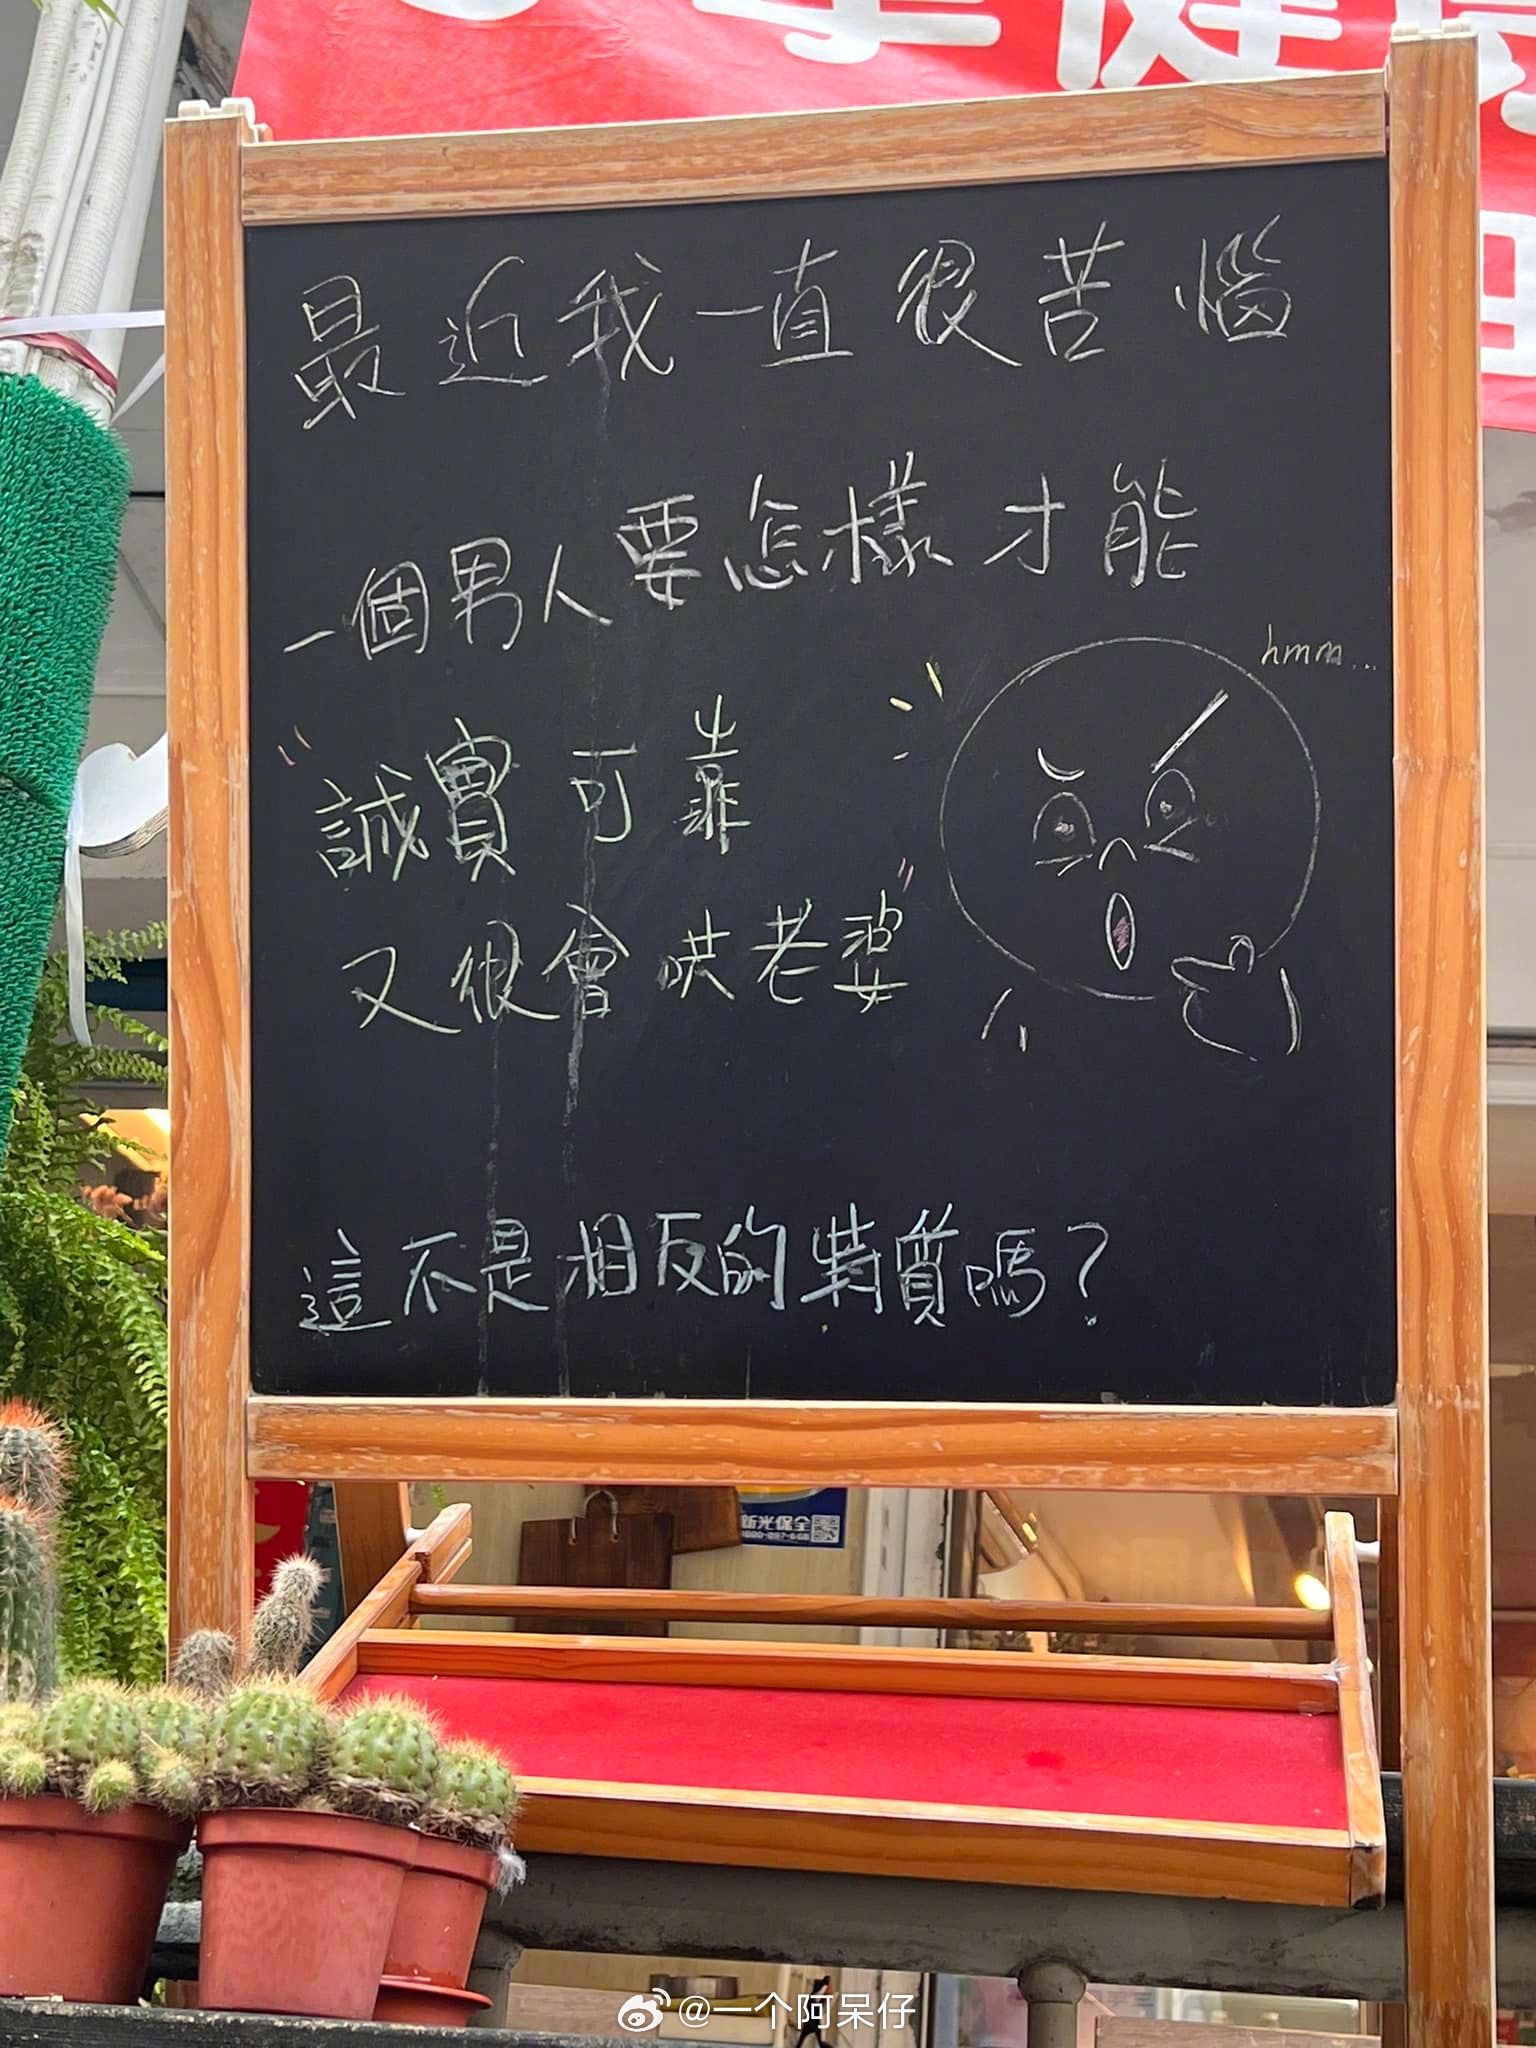 最近我一直很苦惱
一個男人要怎樣才能
hmm...
"誠實可靠
又很會哄老婆"
這不是相反的特質嗎？
新光保全
@一个阿呆仔